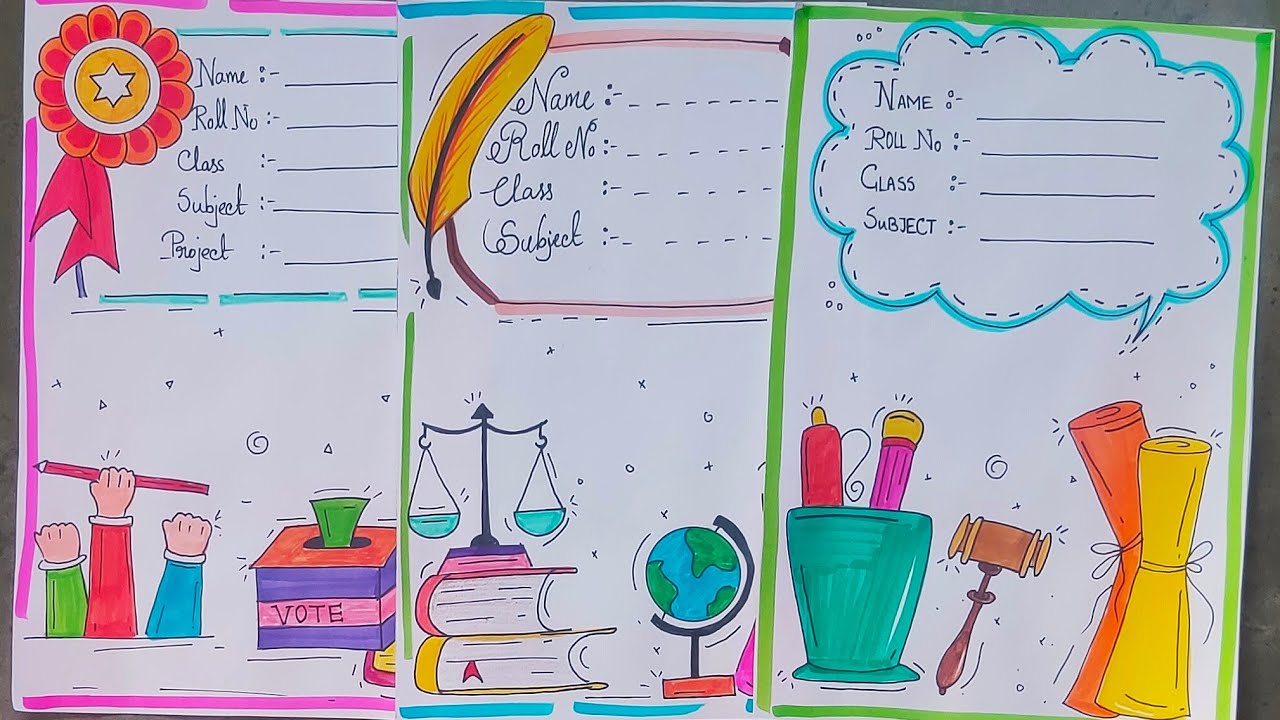 Name :-
Roll No :-
Class :-
Subject :-
Project :-
VOTE
Name :-
Roll No :-
Class :-
Subject :-
NAME :-
ROLL NO :-
CLASS :-
SUBJECT :-